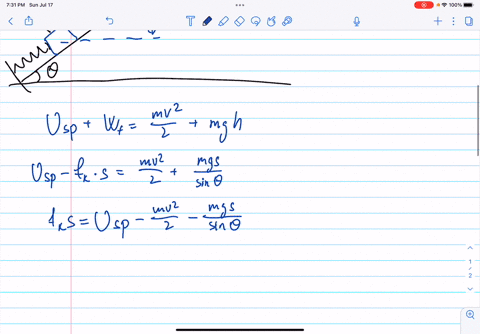 7:31 PM Sun Jul 17
100%
θ
U_sp + W_f = mv²/2 + mgh
U_sp - f_k · s = mv²/2 + mgs/sin θ
f_k s = U_sp - mv²/2 - mgs/sin θ
1
2